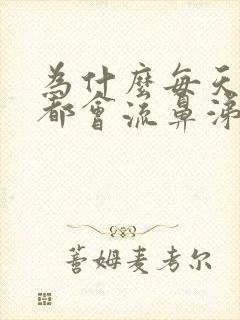 為什麼每天
都會流鼻涕
薔姆麦考尔